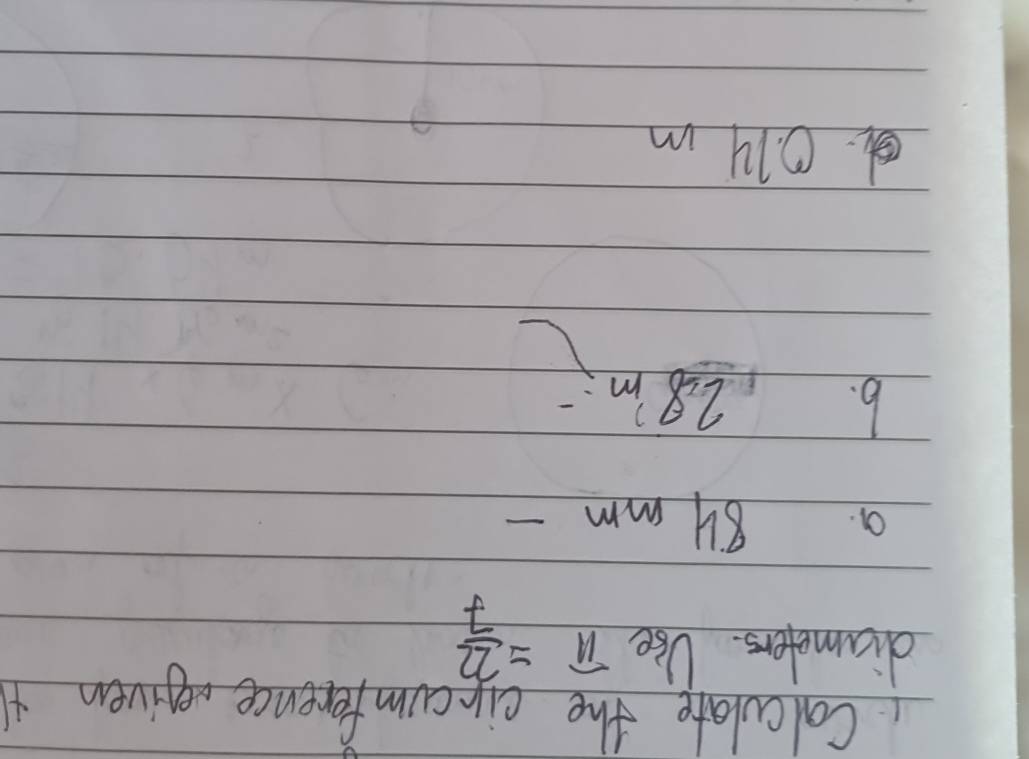 1. Calculate the circumference given
diameters. Use π = 22/7
a. 84 mm -
b. 2.8 m
d. 0.14 m